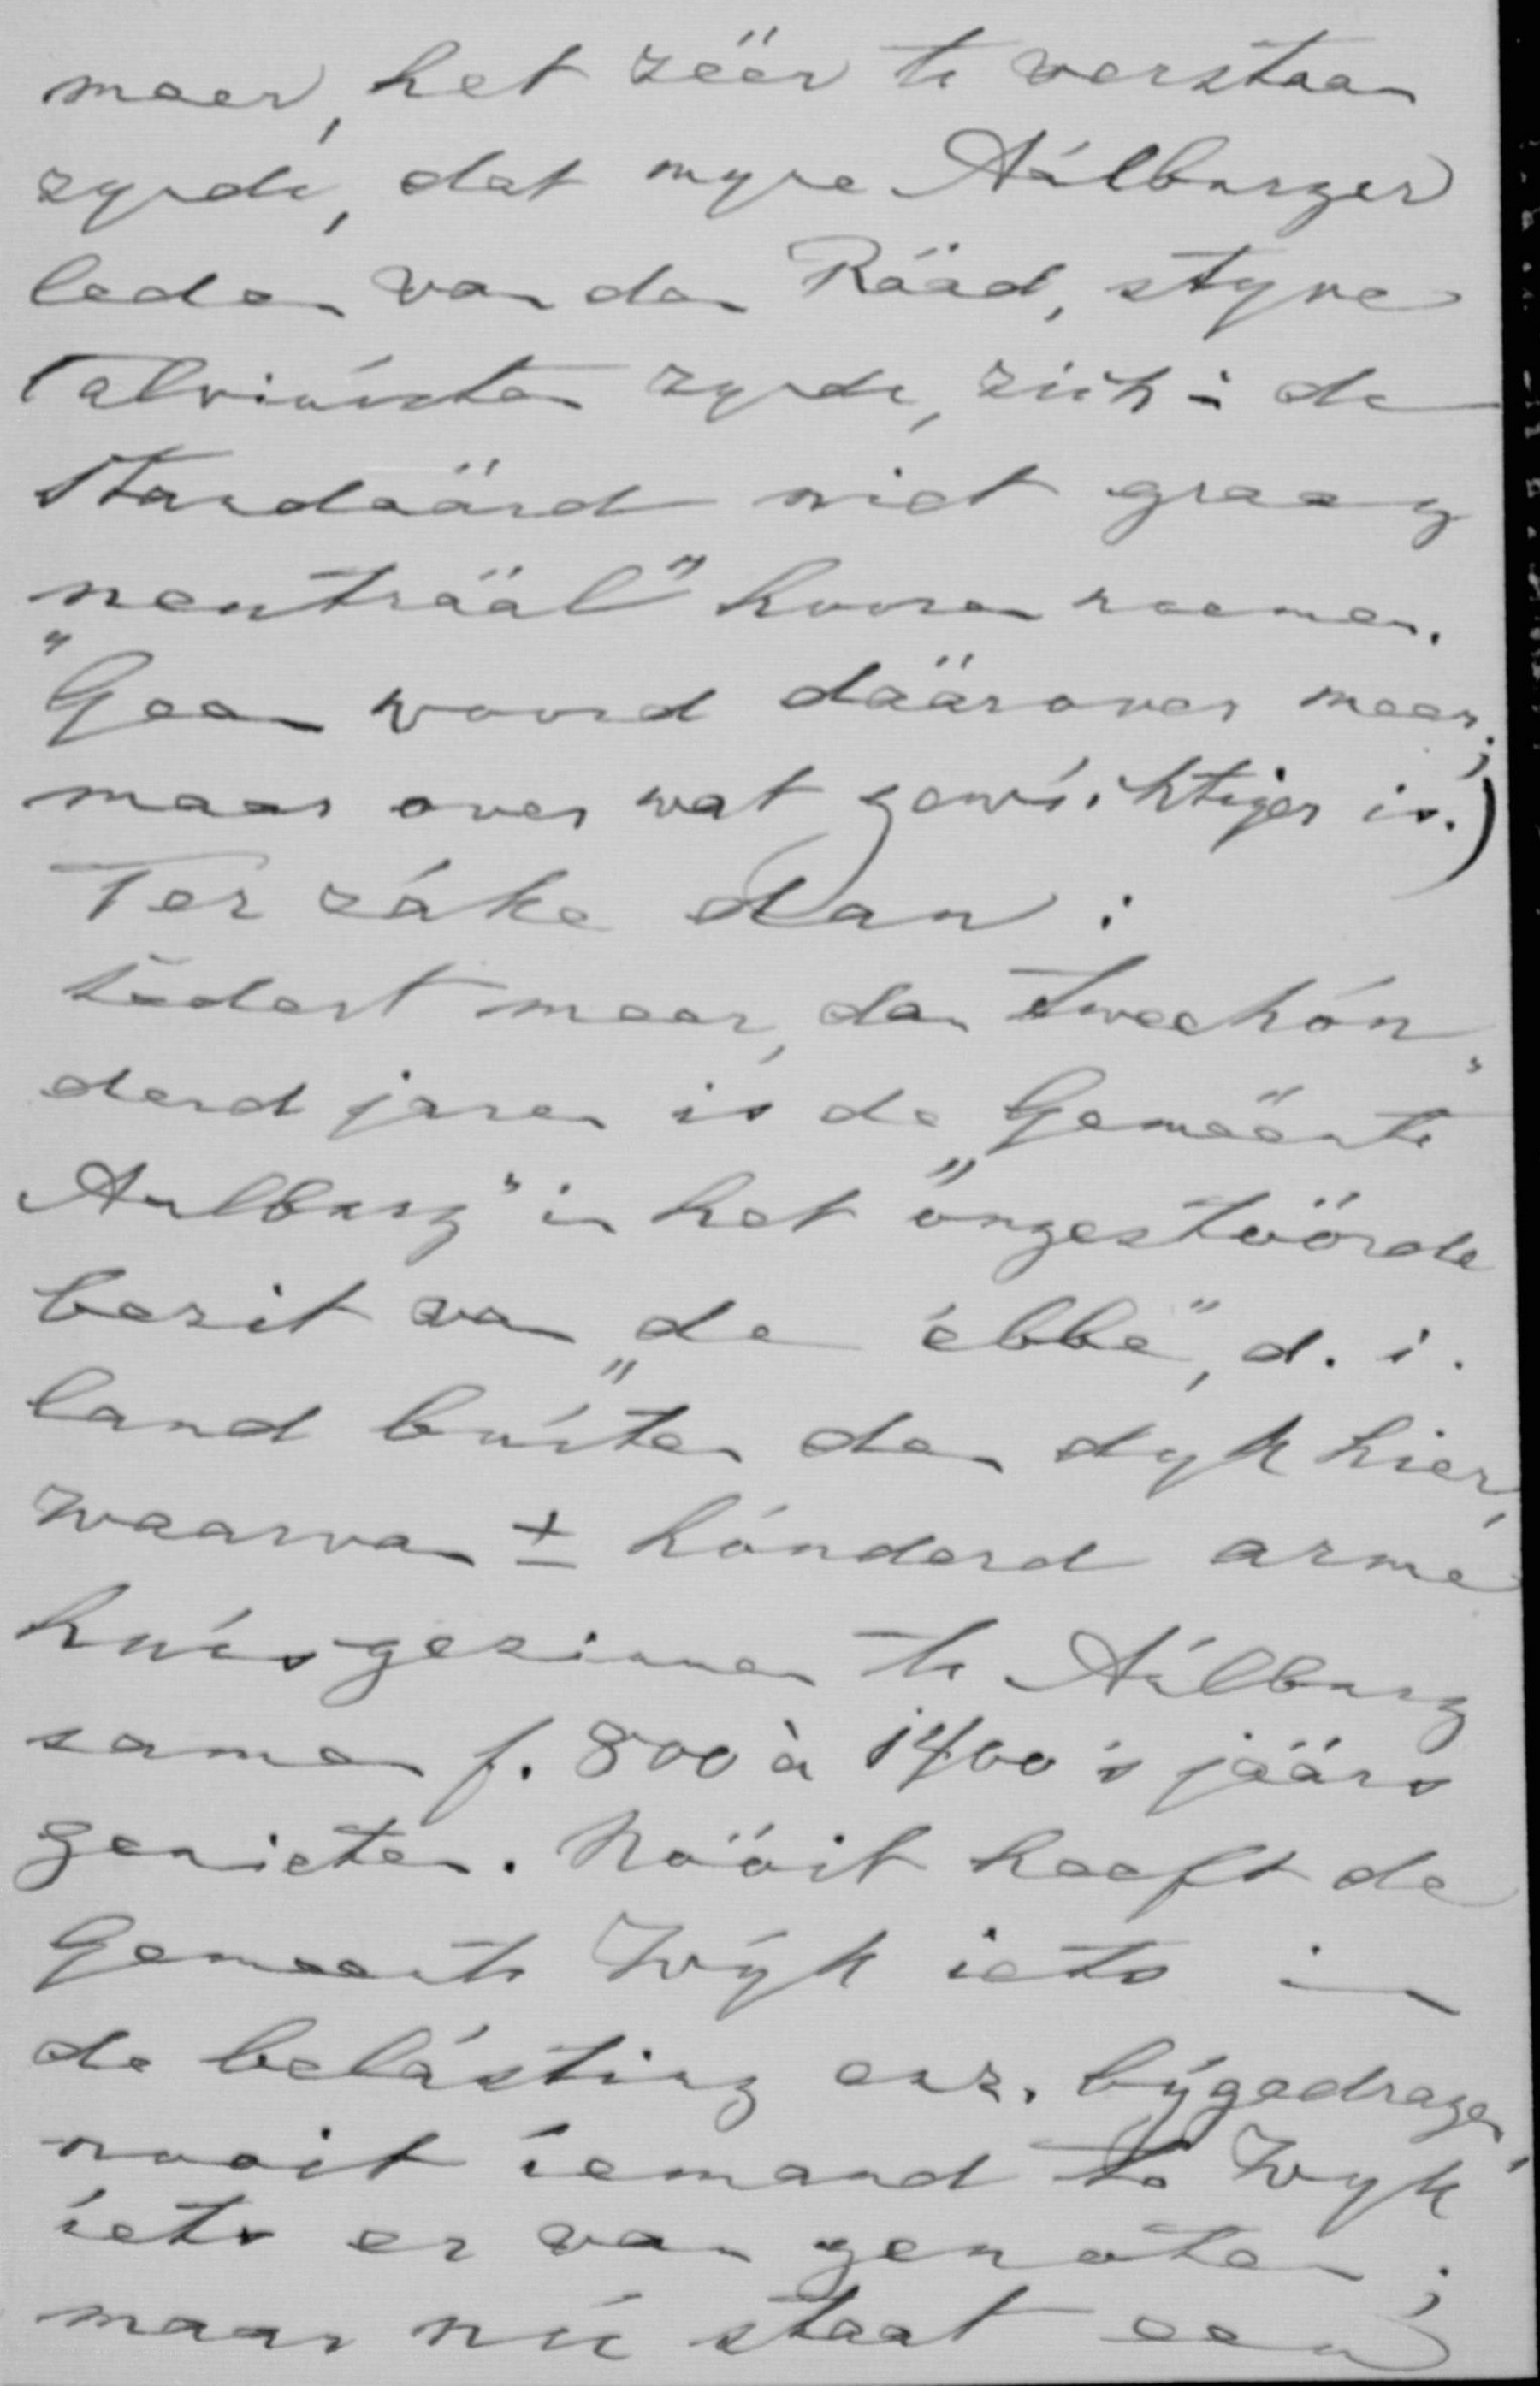 meer, het zéér te verstaan
zynde, dat myne Aálburger
leden van den Ráád, styve
Calvinísten zynde, zích in de
Standáárd niet graag
„neutráál” hooren noemen.
Geen woord dáárover meer;
maar over wat gewíchtiger is.)
Ter záke dan:
Sedert meer, dan tweehón„
derd jaren is de „Geméénte
Aalburg” in het óngestóórde
bezit van „de ébbe”, d. i.
land buíten den dyk hier,
waarvan ± hónderd arme
huísgezinnen te Aálburg
samen f. 800 à 1400 's jáárs
genieten. Nóóit heeft de
Gemeente Wýk iets in
de belásting enz. býgedragen,
nooit íemand te Wyk
íets er van genoten;
maar nú staat een